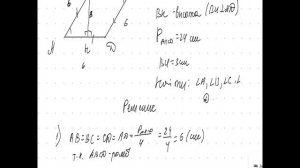 BH - высота (BH⊥AD)
P ABCD = 24 см
BH = 3 см
B
6
A
H
D
6
Найти: ∠A, ∠B, ∠C, ∠
D
Решение
1) AB = BC = CD = AD = P ABCD / 4 = 24 / 4 = 6 (см)
т.к. ABCD - ромб